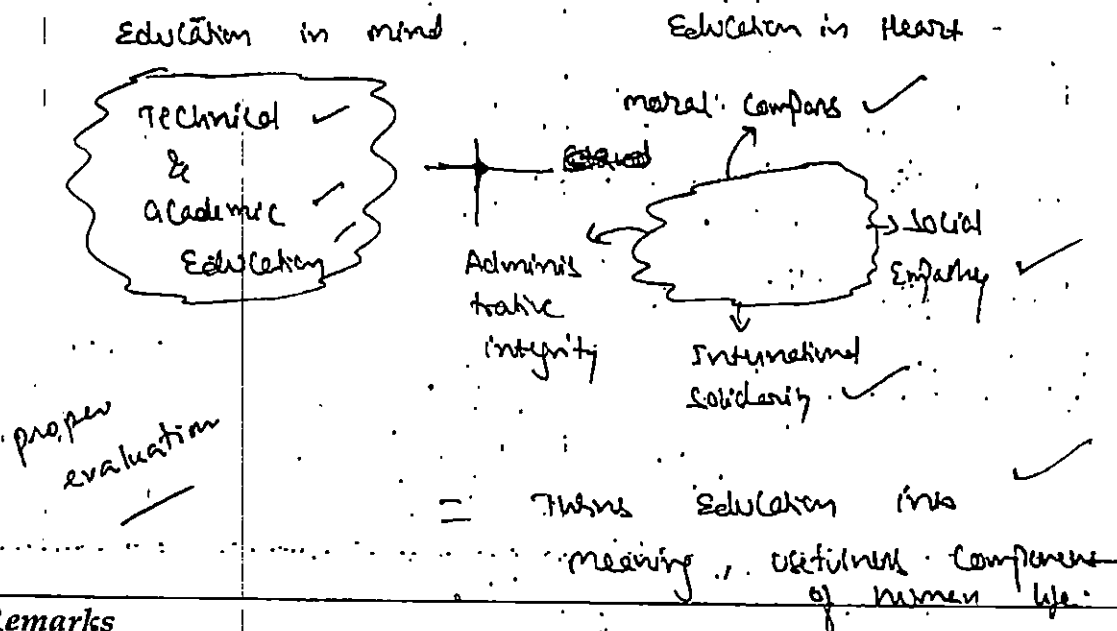 Education in mind.
Education in Heart -
Technical
&
academic
Education
+
moral compass
Social
Empathy
Adminis
trative
integrity
International
Solidarity
proper
evaluation
= Turns Education into
meaning, usefulness component
of human life.
Remarks